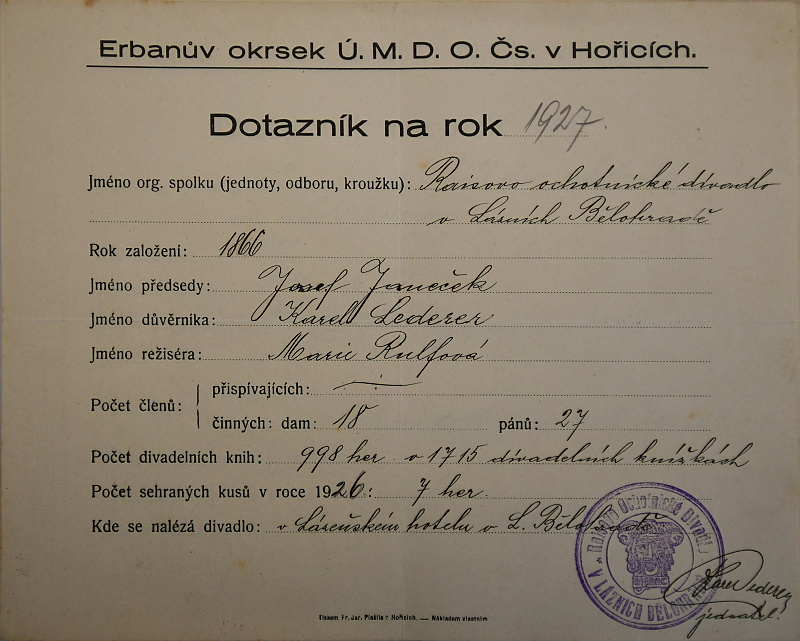 Erbanův okrsek Ú. M. D. O. Čs. v Hořicích.
Dotazník na rok 1927.
Jméno org. spolku (jednoty, odboru, kroužku): Raisovo ochotnické divadlo
v Lázních Bělohradě
Rok založení: 1866
Jméno předsedy: Josef Janeček
Jméno důvěrníka: Karel Lederer
Jméno režiséra: Marie Rulfová
Počet členů: přispívajících: —
činných: dam: 18 pánů: 27
Počet divadelních knih: 998 her v 1715 divadelních knížkách
Počet sehraných kusů v roce 1926: 7 her.
Kde se nalézá divadlo: v Lázeňském hotelu v L. Bělohradě
Ochotnické Divadlo
V LÁZNÍCH BĚLOHRADĚ
Karel Lederer
jednatel.
Tiskem Fr. Jar. Plašila v Hořicích. — Nákladem vlastním